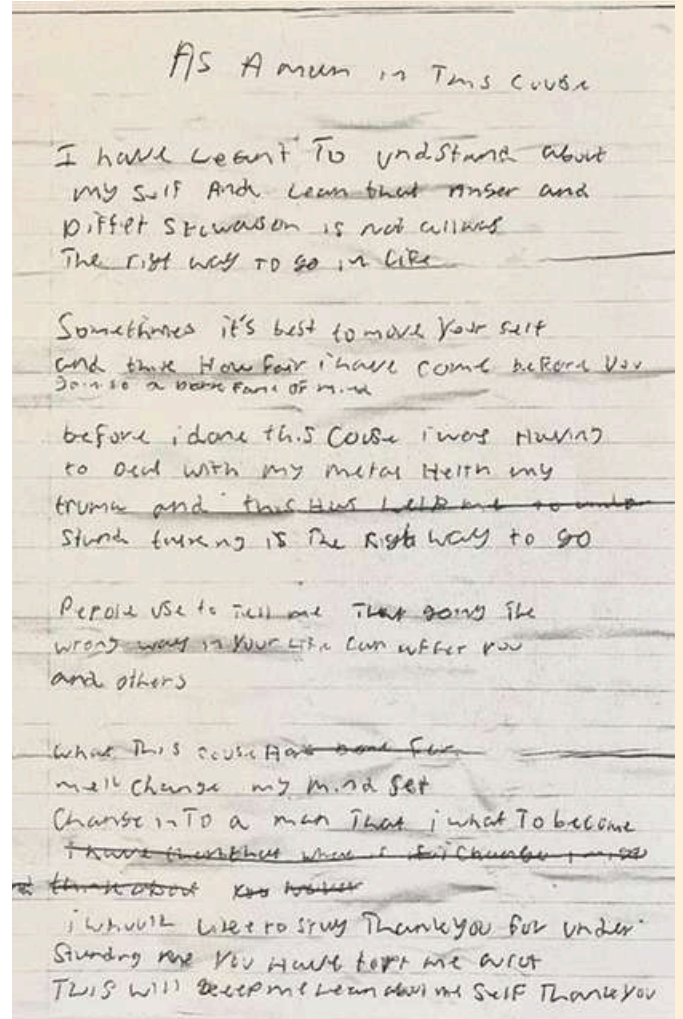 As A man in This Couse
I have Leant To undstand about
my Self And Lean that Anger and
Differ is not allways
The right way to go in Life
Somethimes it's best to move your self
and think How fair i have come before you
Join to a of mind
before i done this Couse i was Having
to Deal with my metal Helth my
truma and this Has help me to under
Stand is The Right way to go
Perople use to Tell me That going The
wrong way in your Life Can affer you
and others
What This couse Has done for
me is Change my mind set
Change inTo a man That i what To become
i have that where i if i Change i
think about
i whould Like to Say Thank you for under
Standing me You Have me
THIS will me Lean about me Self Thank You